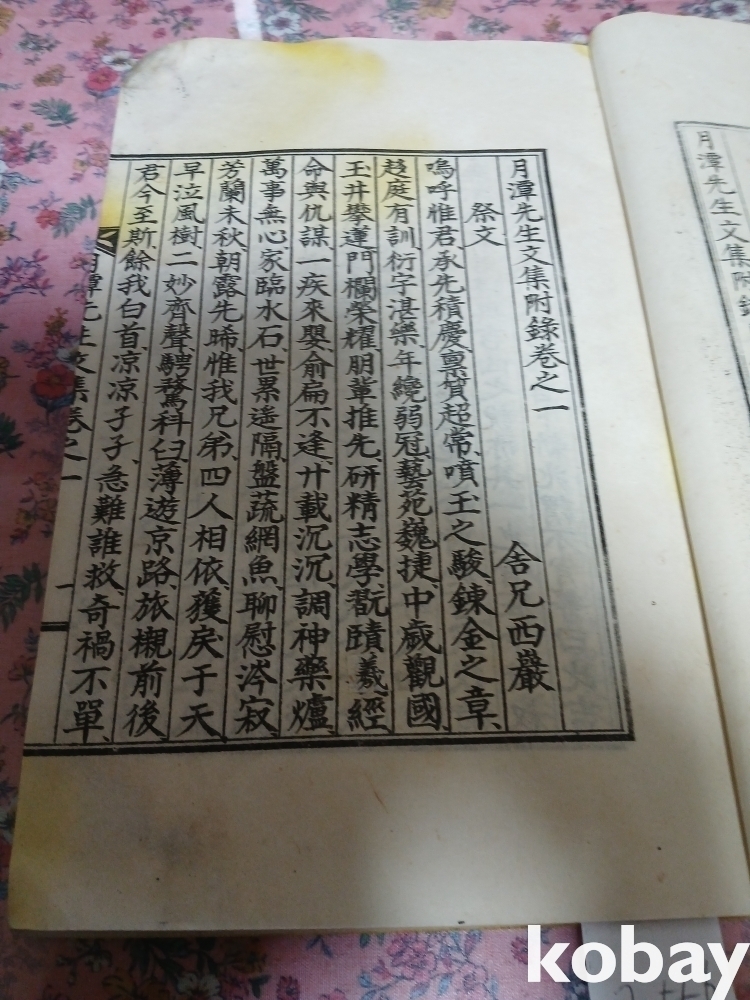 月潭先生文集附錄卷之一
祭文
舍兄西巖
嗚呼惟君承先積慶稟質超常噴玉之駿鍊金之章
趍庭有訓衍字湛樂年纔弱冠藝苑巍捷中歲觀國
玉井攀蓮門欄榮耀朋輩推先研精志學翫賾羲經
命與仇謀一疾來嬰俞扁不逢廾載沉沉調神藥爐
萬事無心家臨水石世累遙隔盤蔬網魚聊慰涔寂
芳蘭未秋朝露先晞惟我兄弟四人相依獲戾于天
早泣風樹二妙齊聲騁騖科臼薄遊京路旅櫬前後
君今至斯餘我白首凉凉孑孑急難誰救奇禍不單
月潭先生文集卷之一
一
月潭先生文集附錄
kobay